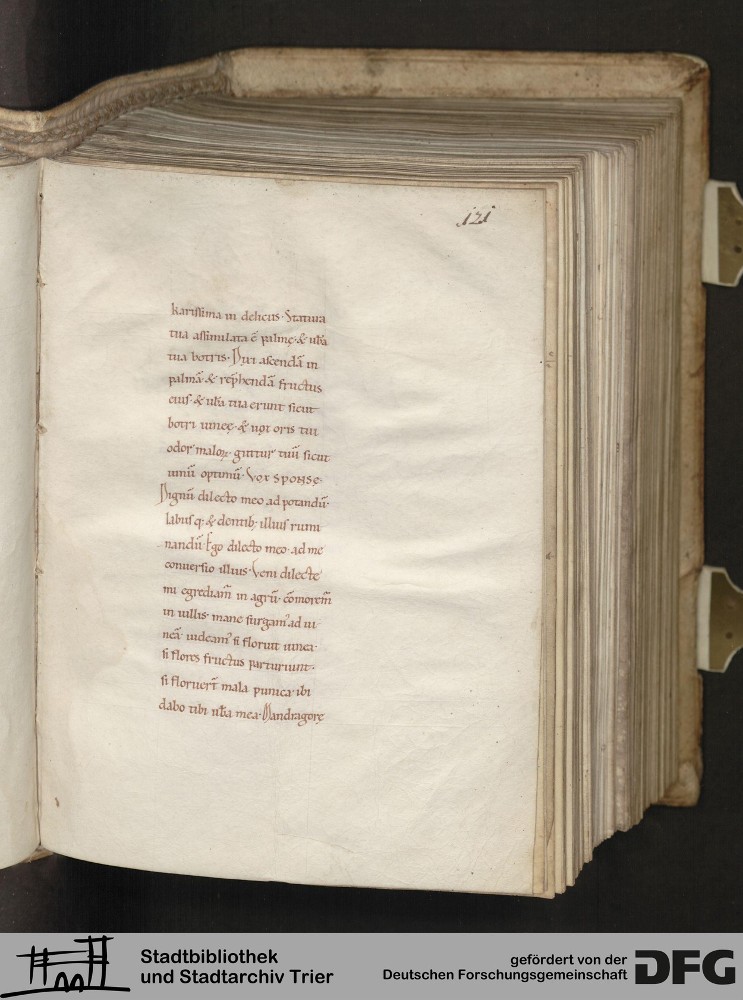 121
karissima in deliciis· Statura
tua assimilata ē palmę· & ub̄a
tua botris· Dixi ascendā in
palmā· & rep̄hendā fructus
eius· & ub̄a tua erunt sicut
botri uineę· & odor oris tui
odor malorꝫ· guttur tuū sicut
uinū optimū· Vox sponsę·
Dignū dilecto meo ad potandū·
labiis qꝫ & dentibꝫ illius rumi
nandū Ego dilecto meo· ad me
conuersio illius· Veni dilecte
mi egrediam̄ in agrū· cōmorem̄
in uillis· mane surgam᷒ ad ui
neā· uideam᷒ si floruit uinea·
si flores fructus parturiunt·
si floruer̄t mala punica· ibi
dabo tibi ub̄a mea· Mandragorę
Stadtbibliothek
und Stadtarchiv Trier
gefördert von der
Deutschen Forschungsgemeinschaft
DFG